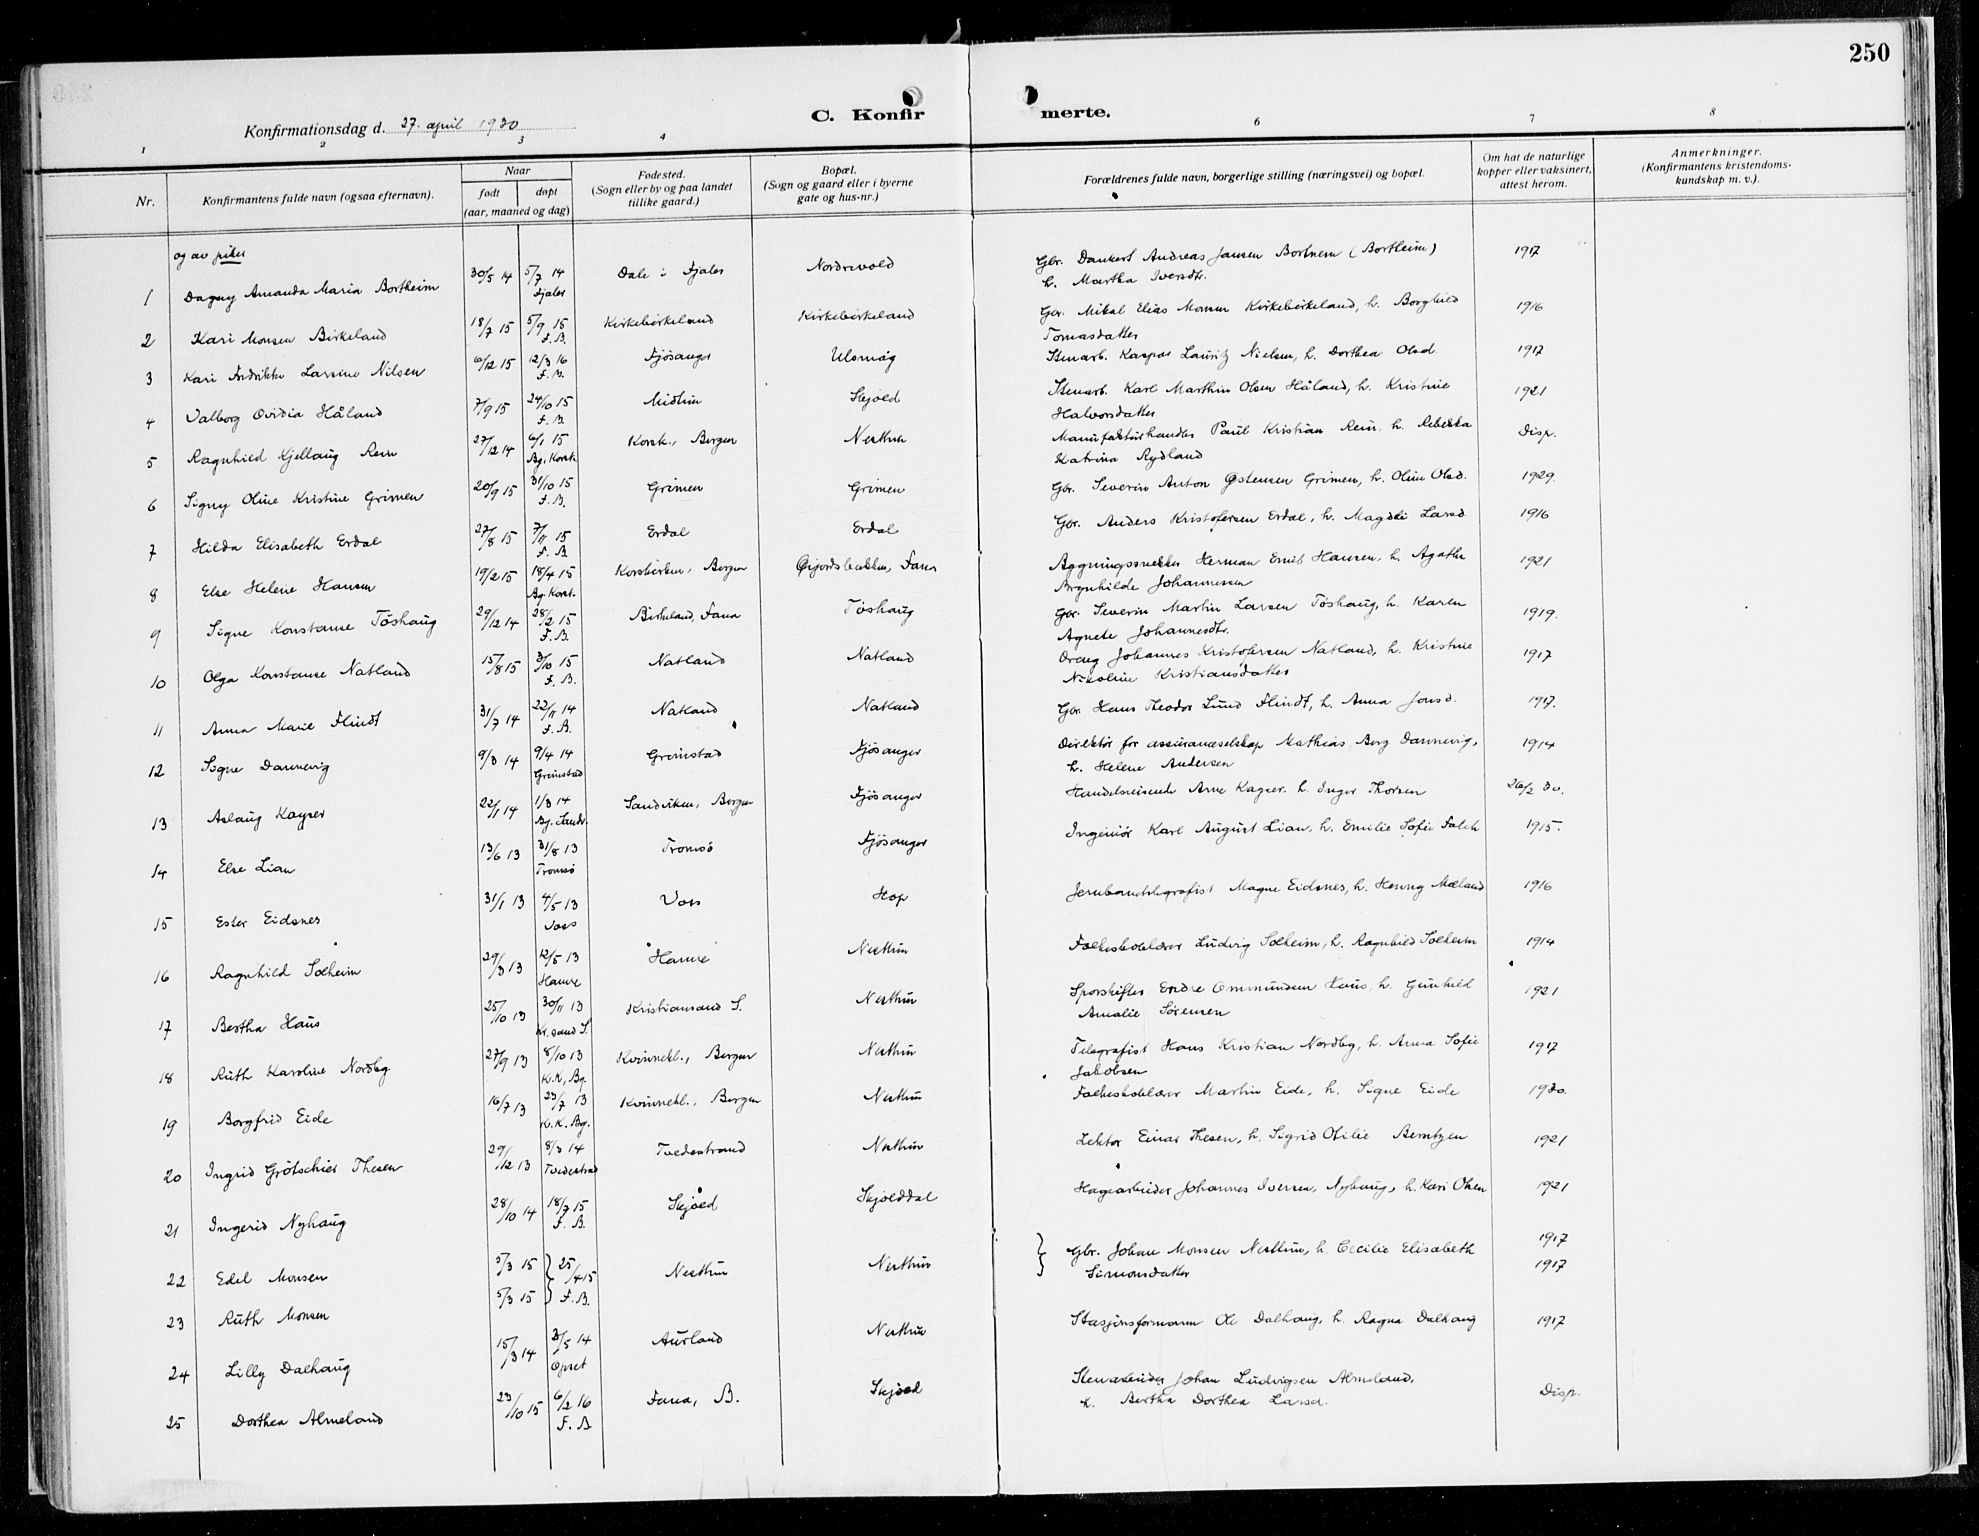 250
Konfirmationsdag d. 27. april 1930
C. Konfirmerte.
1 2 3 4 6 7 8
Nr. | Konfirmantens fulde navn (ogsaa efternavn). | Naar født døpt (aar, maaned og dag) | Fødested. (Sogn eller by og paa landet tillike gaard.) | Bopæl. (Sogn og gaard eller i byerne gate og hus-nr.) | Forældrenes fulde navn, borgerlige stilling (næringsvei) og bopæl. | Om hat de naturlige kopper eller vaksinert, attest herom. | Anmerkninger. (Konfirmantens kristendomskundskap m. v.).
og av piker
1 Dagny Amanda Maria Bortheim | 30/5 14 | 5/7 14 Fjaler | Dale i Fjaler | Nordrevold | Gbr. Dankert Andreas Jansen Bortnem (Bortheim) h. Martha Iversdtr. | 1917
2 Kari Monsen Birkeland | 18/7 15 | 5/9 15 F.B. | Kirkebirkeland | Kirkebirkeland | Gbr. Mikal Elias Monsen Kirkebirkeland, h. Borghild Tomasdatter | 1916
3 Kari Fredrikke Larsine Nilsen | 6/12 15 | 12/3 16 F.B. | Fjösanger | Ulsmåg | Stenarb. Kaspar Lauritz Nielsen, h. Dorthea Olsd. | 1917
4 Valborg Ovidia Håland | 7/9 15 | 24/10 15 F.B. | Midtun | Skjold | Stenarb. Karl Marthin Olsen Håland, h. Kristine Halvorsdatter | 1921
5 Ragnhild Kjellaug Rein | 27/12 14 | 6/1 15 Bg. Korsk. | Korsk., Bergen | Nesttun | Manufakturhandler Paul Kristian Rein, h. Rebekka Katrina Rydland | Disp.
6 Signy Oline Kristine Grimen | 20/9 15 | 31/10 15 F.B. | Grimen | Grimen | Gbr. Severin Anton Østensen Grimen, h. Oline Olsd. | 1929.
7 Hilda Elisabeth Erdal | 27/8 15 | 7/11 15 F.B. | Erdal | Erdal | Gbr. Anders Kristofersen Erdal, h. Magdli Larsd. | 1916
8 Else Helene Hansen | 19/2 15 | 18/4 15 Bg. Korsk. | Korskirken, Bergen | Øijordsbakken, Fana | Herman Emil Hansen, h. Agathe Johannessen | 1921
9 Signe Konstanse Töshaug | 29/12 14 | 28/2 15 F.B. | Birkeland, Fana | Töshaug | Gbr. Severin Martin Larsen Töshaug, h. Karen Agnete Johannesdtr. | 1919.
10 Olga Konstanse Natland | 15/8 15 | 3/10 15 F.B. | Natland | Natland | Dreng Johannes Kristofersen Natland, h. Kristine Nikoline Kristiansdatter | 1917
11 Anna Marie Flindt | 31/7 14 | 22/11 14 F.B. | Natland | Natland | Gbr. Hans Theodor Lund Flindt, h. Anna Jonsd. | 1917.
12 Signe Dannevig | 9/3 14 | 9/4 14 Grimstad | Grimstad | Fjösanger | Direktör for assuranceselskap Mathias Berg Dannevig, h. Helene Andersen | 1914
13 Aslaug Kayser | 22/1 14 | 1/3 14 Bg. Sandv. | Sandviken, Bergen | Fjösanger | Handelsreisende Arne Kayser, h. Inger Thorsen | 26/2 30.
14 Else Lian | 13/6 13 | 31/8 13 Tromsö | Tromsö | Fjösanger | Ingeniör Karl August Lian, h. Emilie Sofie Falck | 1915.
15 Ester Eidsnes | 31/1 13 | 4/5 13 Voss | Voss | Hop | Jernbanetelegrafist Magne Eidsnes, h. Henny Mæland | 1916
16 Ragnhild Solheim | 29/3 13 | 12/5 13 Hamre | Hamre | Nesttun | Folkeskolelærer Ludvig Solheim, h. Ragnhild Solheim | 1914
17 Bertha Haus | 25/10 13 | 30/11 13 Kr.sand S. | Kristiansand S. | Nesttun | Sporskifter Endre Ommundsen Haus, h. Gunhild Amalie Sörensen | 1921
18 Ruth Karoline Nordbg | 27/9 13 | 8/10 13 K.K., Bg. | Kvinnekl., Bergen | Nesttun | Telegrafist Hans Kristian Nordbg, h. Anna Sofie Jakobsen | 1917
19 Borgfrid Eide | 16/7 13 | 23/7 13 K.K. Bg. | Kvinnekl., Bergen | Nesttun | Folkeskolelærer Martin Eide, h. Signe Eide | 1930.
20 Ingrid Grötschier Thesen | 29/12 13 | 8/3 14 Tvedestrad | Tvedestrand | Nesttun | Lektor Einar Thesen, h. Sigrid Otilie Berntzen | 1921
21 Ingerid Nyhaug | 28/10 14 | 18/7 15 F.B. | Skjold | Skjolddal | Hagearbeider Johannes Iversen, Nyhaug, h. Kari Olsen | 1921
22 Edel Monsen | 5/3 15 | } 25/4 15 F.B. | Nesttun | Nesttun | } Gbr. Johan Monsen Nesttun, h. Cecilie Elisabeth Simonsdatter | 1917
23 Ruth Monsen | 5/3 15 | 1917
24 Lilly Dalhaug | 15/3 14 | 3/5 14 Opset | Aurland | Nesttun | Stasjonsformann Ole Dalhaug, h. Ragna Dalhaug | 1917
25 Dorthea Almeland | 23/10 15 | 6/2 16 F.B | Fana, B. | Skjold | Stenarbeider Johan Ludvigsen Almeland, h. Bertha Dorthea Larsd. | Disp.